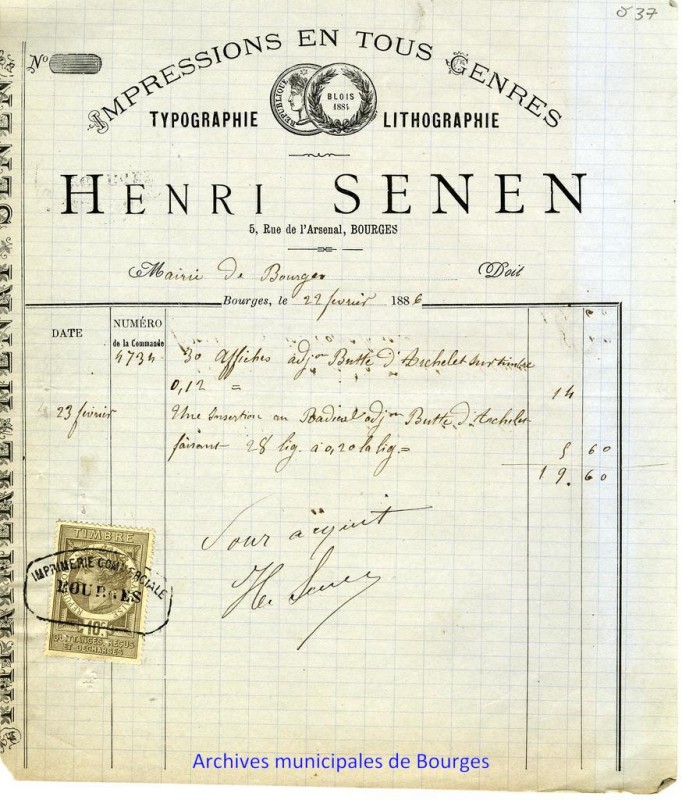 837
No
IMPRESSIONS EN TOUS GENRES
RÉPUBLIQUE
BLOIS
1884
TYPOGRAPHIE LITHOGRAPHIE
HENRI SENEN
5, Rue de l'Arsenal, BOURGES
Mairie de Bourges Doit
Bourges, le 22 février 1886
DATE NUMÉRO de la Commande
4734 30 Affiches adjon Butte d'Archelet sur timbre
0,12 = 14
23 février Une insertion au Radical adjon Butte d'Archelet
faisant 28 lig. à 0,20 la lig = 5 60
19. 60
Pour acquit
H. Senen
TIMBRE
IMPRIMERIE COMMERCIALE
BOURGES
10c
QUITTANCES, REÇUS
ET DÉCHARGES
Archives municipales de Bourges